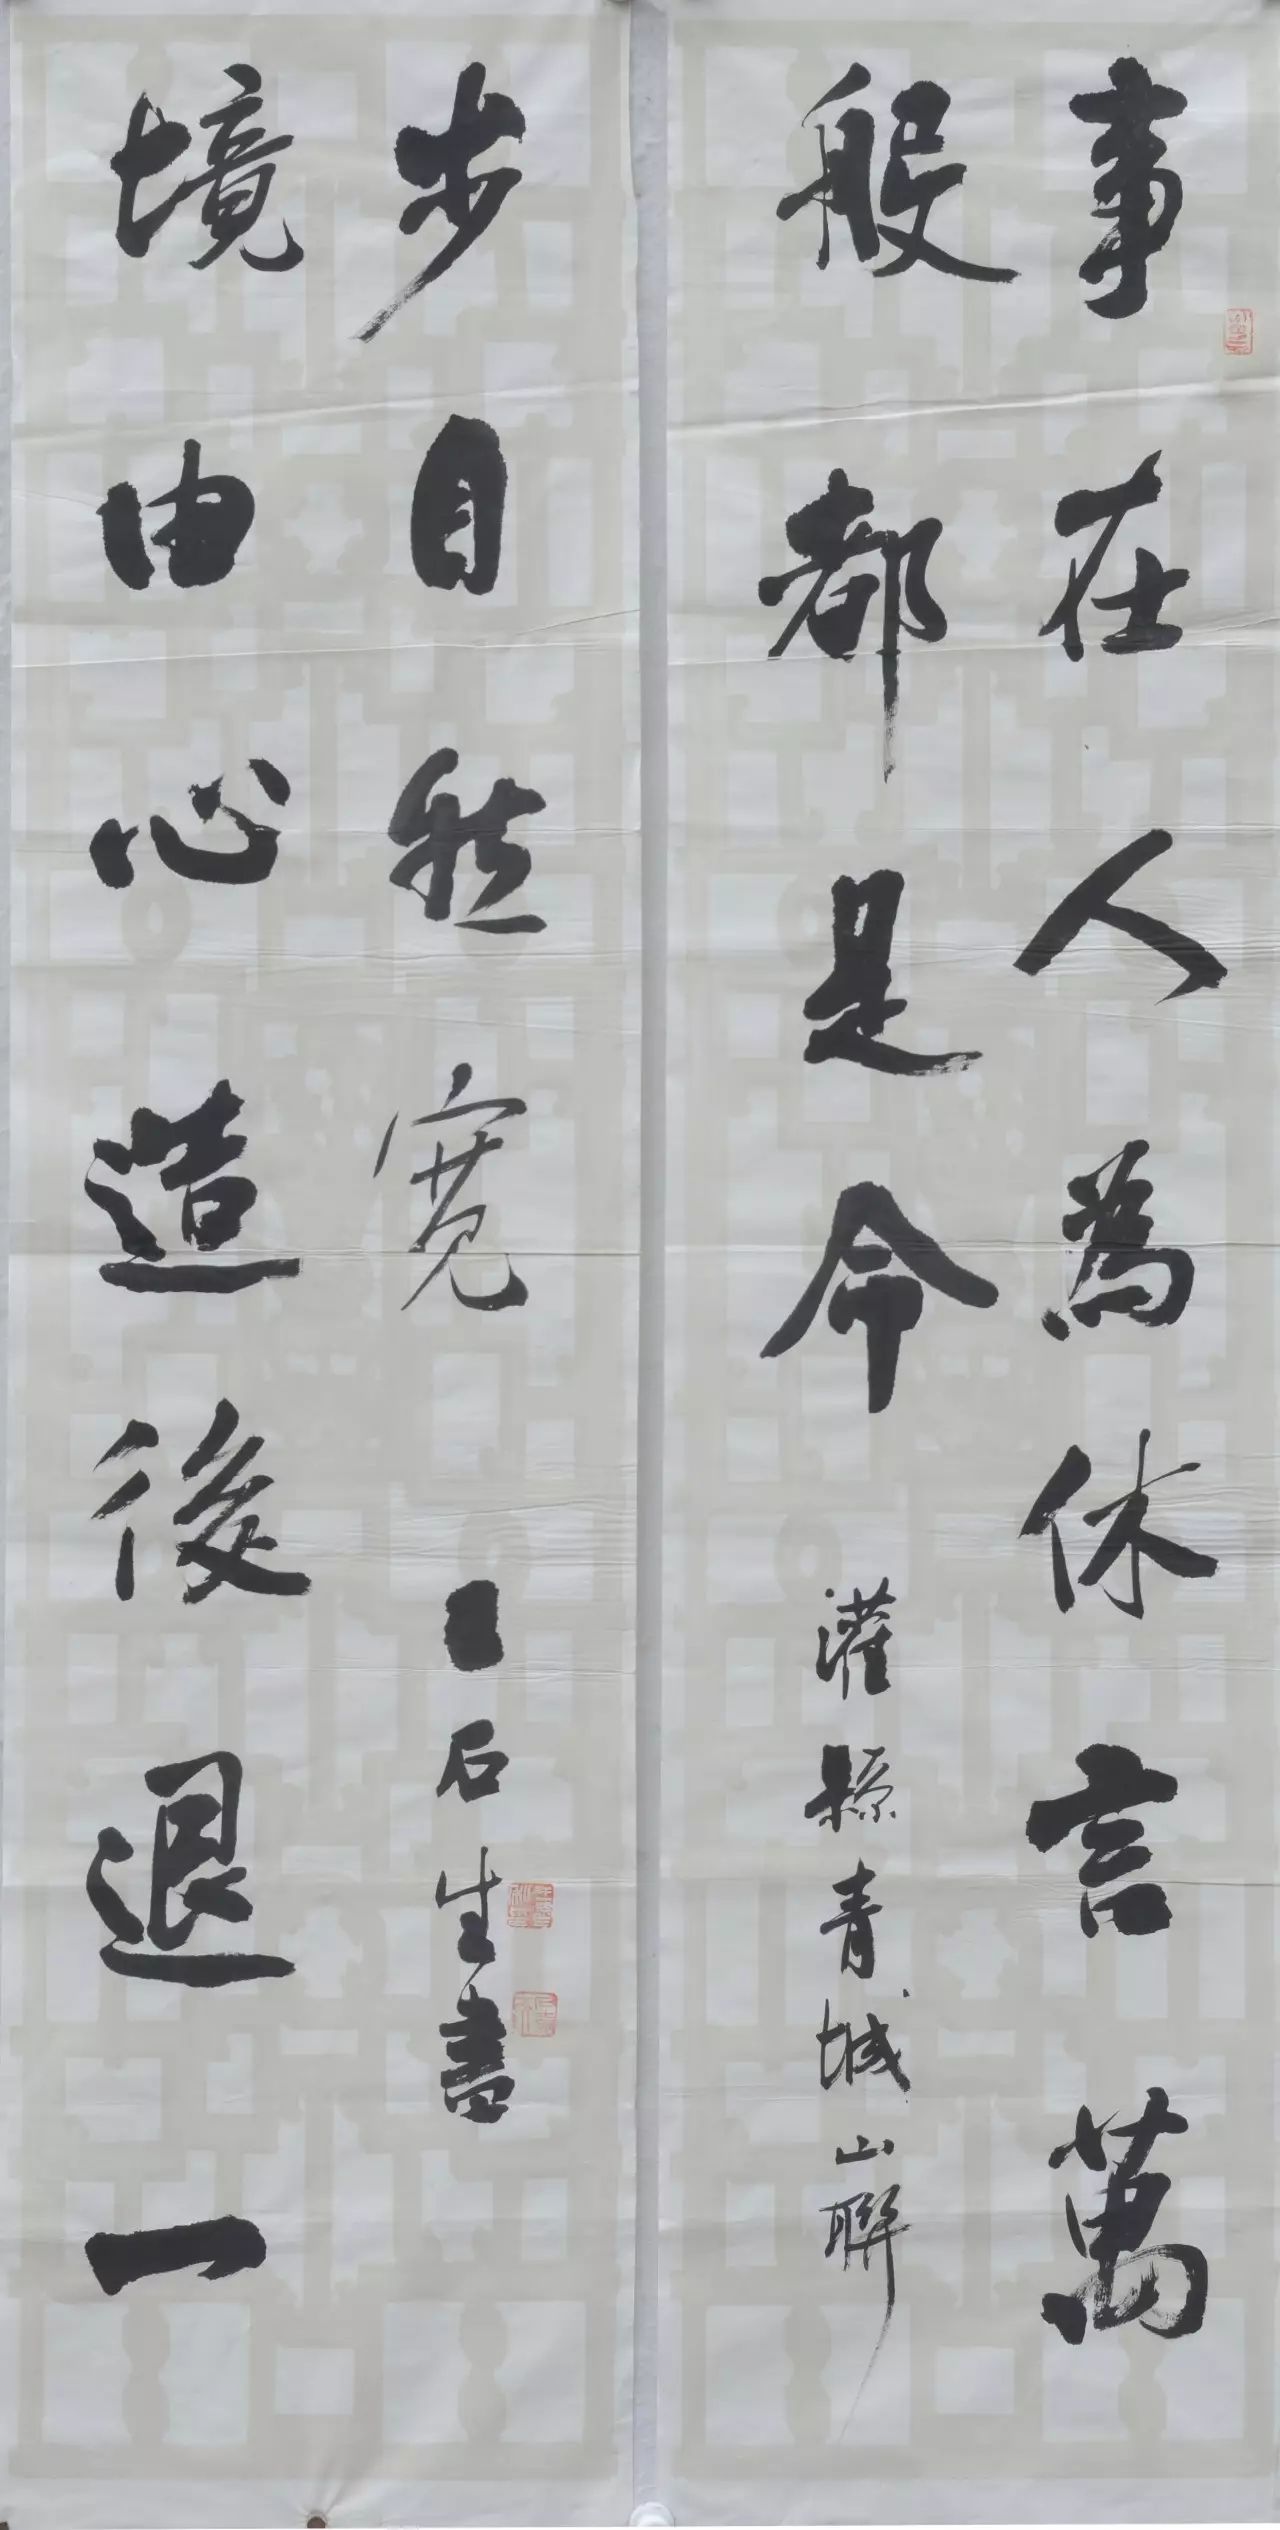 事在人為休言萬
般都是命
灌縣青城山聯
境由心造後退一
步自然寬
石生書